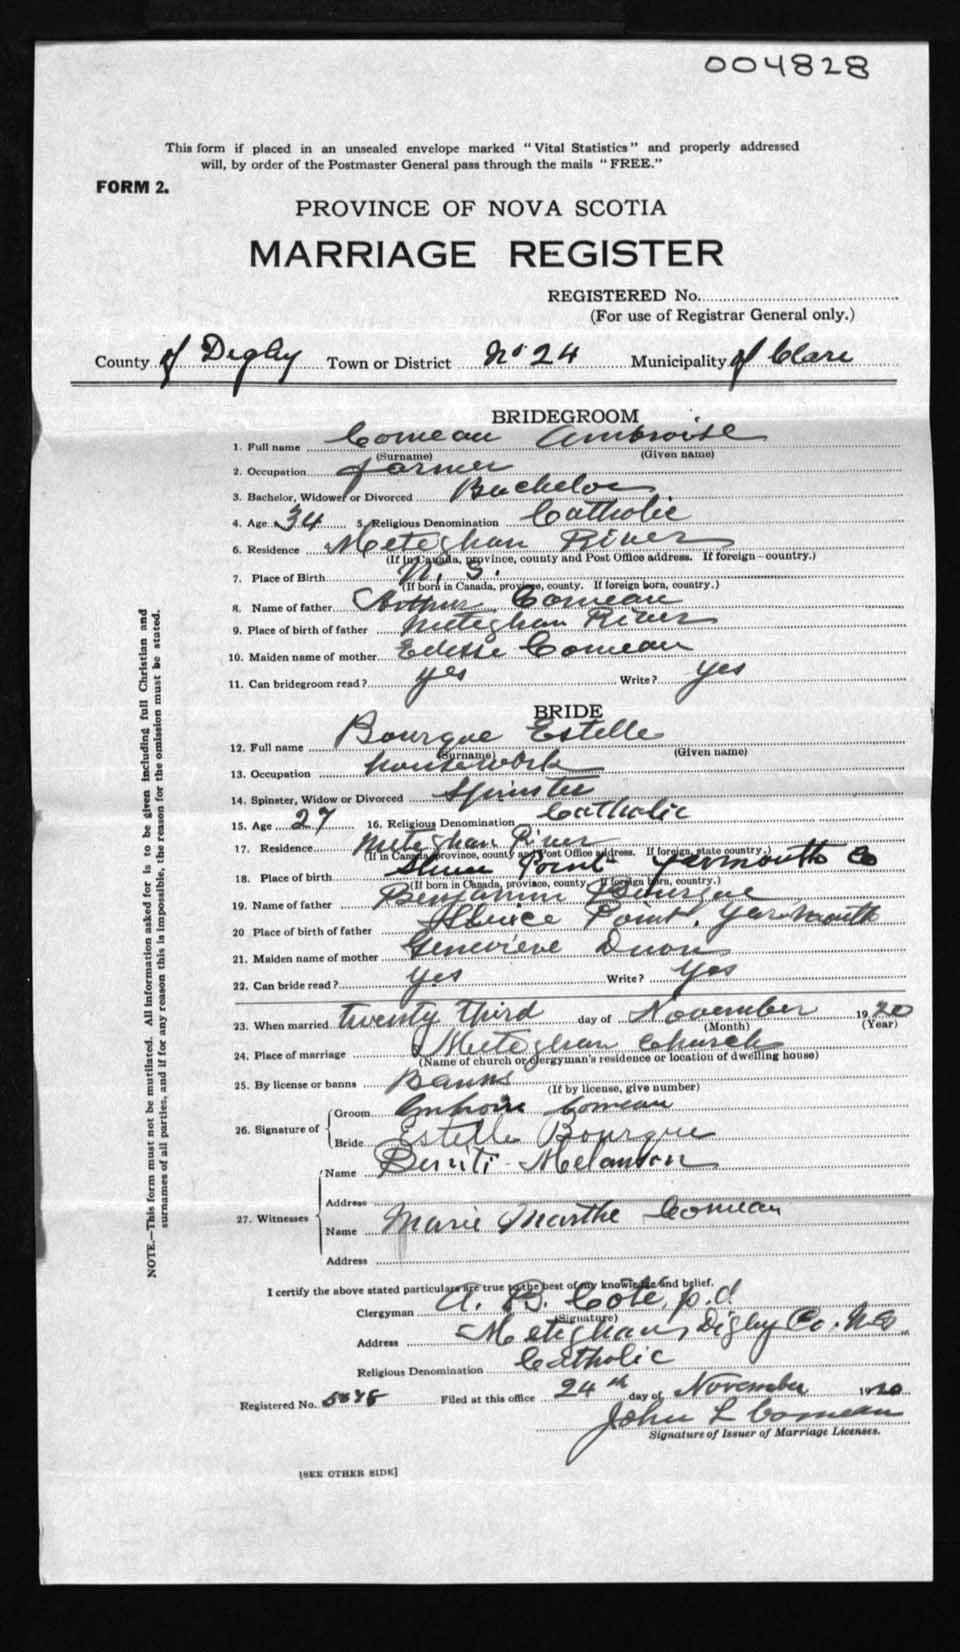 004828
This form if placed in an unsealed envelope marked "Vital Statistics" and properly addressed
will, by order of the Postmaster General pass through the mails "FREE."
FORM 2.
PROVINCE OF NOVA SCOTIA
MARRIAGE REGISTER
REGISTERED No.
(For use of Registrar General only.)
County of Digby Town or District No 24 Municipality of Clare
BRIDEGROOM
1. Full name Comeau Ambroise
(Surname) (Given name)
2. Occupation farmer
3. Bachelor, Widower or Divorced Bachelor
4. Age 34 5. Religious Denomination Catholic
6. Residence Meteghan River
(If in Canada, province, county and Post Office address. If foreign—country.)
7. Place of Birth N. S.
(If born in Canada, province, county. If foreign born, country.)
8. Name of father Arthur Comeau
9. Place of birth of father Meteghan River
10. Maiden name of mother Edesse Comeau
11. Can bridegroom read? yes Write? yes
BRIDE
12. Full name Bourque Estelle
(Surname) (Given name)
13. Occupation housework
14. Spinster, Widow or Divorced Spinster
15. Age 27 16. Religious Denomination Catholic
17. Residence Meteghan River
(If in Canada, province, county and Post Office address. If foreign, state country.)
18. Place of birth Point Yarmouth Co
(If born in Canada, province, county. If foreign born, country.)
19. Name of father Benjamin Bourque
20 Place of birth of father Sluice Point, Yarmouth
21. Maiden name of mother Genevieve Duon
22. Can bride read? yes Write? yes
23. When married twenty third day of November 1920
(Month) (Year)
24. Place of marriage Meteghan Church
(Name of church or clergyman's residence or location of dwelling house)
25. By license or banns Banns
(If by license, give number)
26. Signature of
Groom Comeau
Bride Estelle Bourque
27. Witnesses
Name Melanson
Address
Name Marie Marthe Comeau
Address
I certify the above stated particulars are true to the best of my knowledge and belief.
Clergyman A. B. Coté, p.d.
(Signature)
Address Meteghan, Digby Co. N.S.
Religious Denomination Catholic
Registered No. Filed at this office 24th day of November 1920
John L Comeau
Signature of Issuer of Marriage Licenses.
[SEE OTHER SIDE]
NOTE.—This form must not be mutilated. All information asked for is to be given including full Christian and
surnames of all parties, and if for any reason this is impossible, the reason for the omission must be stated.